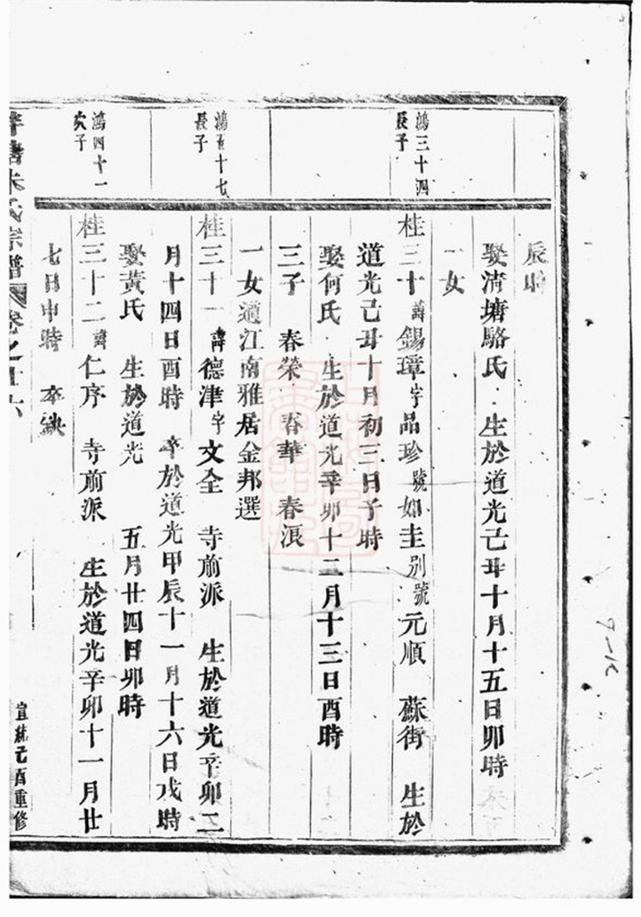 辰時
娶清塘駱氏 生於道光己丑十月十五日卯時
一女
鴻三十四
長子
桂三十諱錫璋字品珍號如圭別號元順 蘇街 生於
道光己丑十月初三日子時
娶何氏 生於道光辛卯十二月十三日酉時
三子 春榮 春華 春浪
一女適江南雅居金邦選
鴻百十七
長子
桂三十一諱德津字文全 寺前派 生於道光辛卯二
月十四日酉時 卒於道光甲辰十一月十六日戌時
娶黃氏 生於道光 五月廿四日卯時
鴻四十一
次子
桂三十二諱仁序 寺前派 生於道光辛卯十一月廿
七日申時 卒缺
朱氏宗譜 卷之廿六
宣統元酉重修